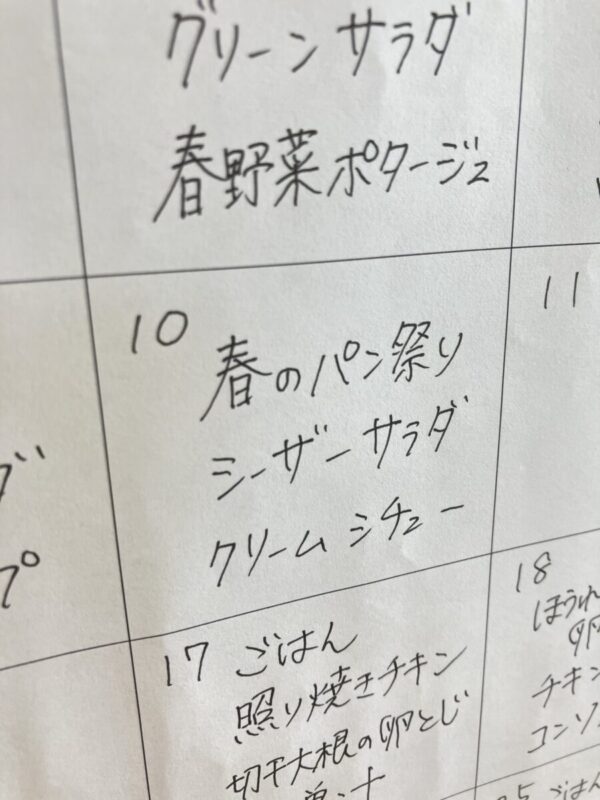 グリーンサラダ
春野菜ポタージュ
10
春のパン祭り
シーザーサラダ
クリームシチュー
11
17 ごはん
照り焼きチキン
切干大根の卵とじ
18
ほうれ
卵
チキン
コンソ
ごはん